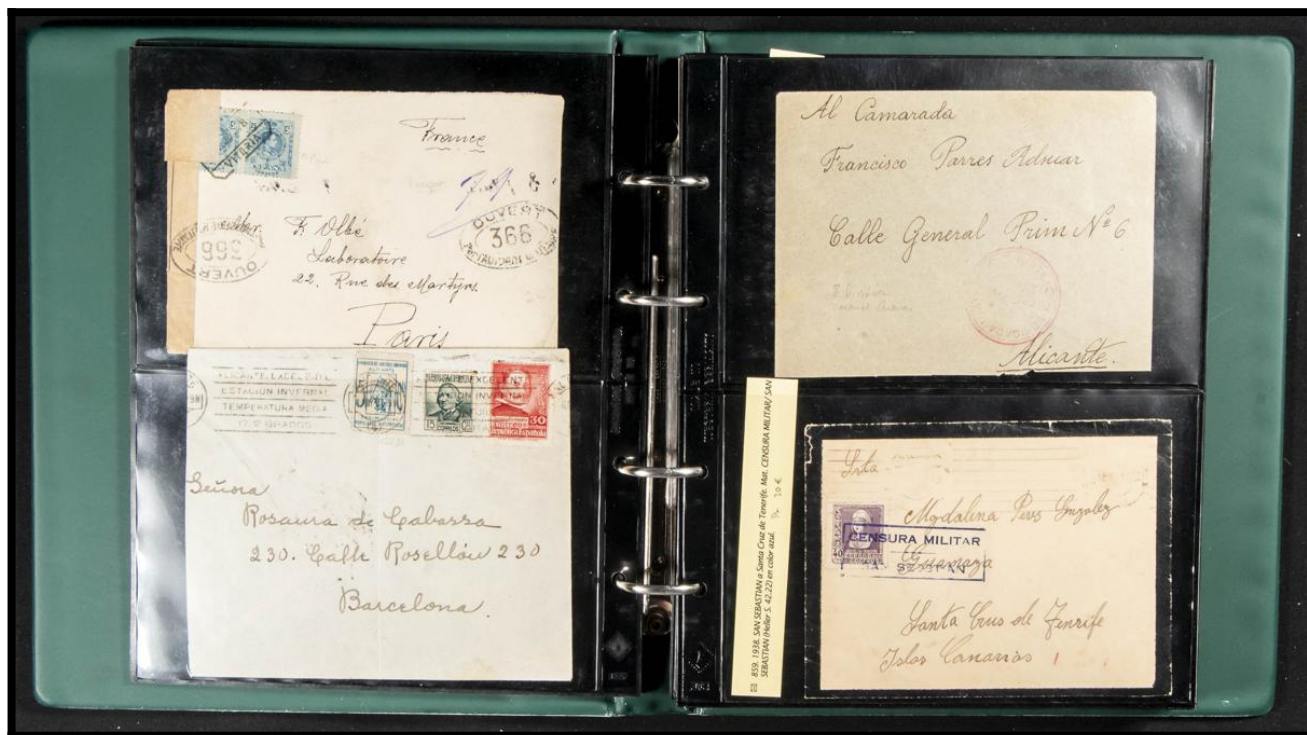 France
OUVERT
366
F. Olbé
Laboratoire
22. Rue des Martyrs.
Paris
366
OUVERT
ALICANTE EXCELENTE
ESTACION INVERNAL
TEMPERATURA MEDIA
EXCELENTE
15
30
Señora
Rosaura de Cabassa
230. Calle Rosellón 230
Barcelona.
Al Camarada
Francisco Parres Adsuar
Calle General Prim Nº 6
Alicante.
859. 1938. SAN SEBASTIAN a Santa Cruz de Tenerife. Mat. CENSURA MILITAR/ SAN
SEBASTIAN (Heller S. 42.22) en color azul. 30 €
Srta
Magdalina Peres Gonzalez
CENSURA MILITAR
Guamaza
Santa Crus de Tenrife
Islas Canarias